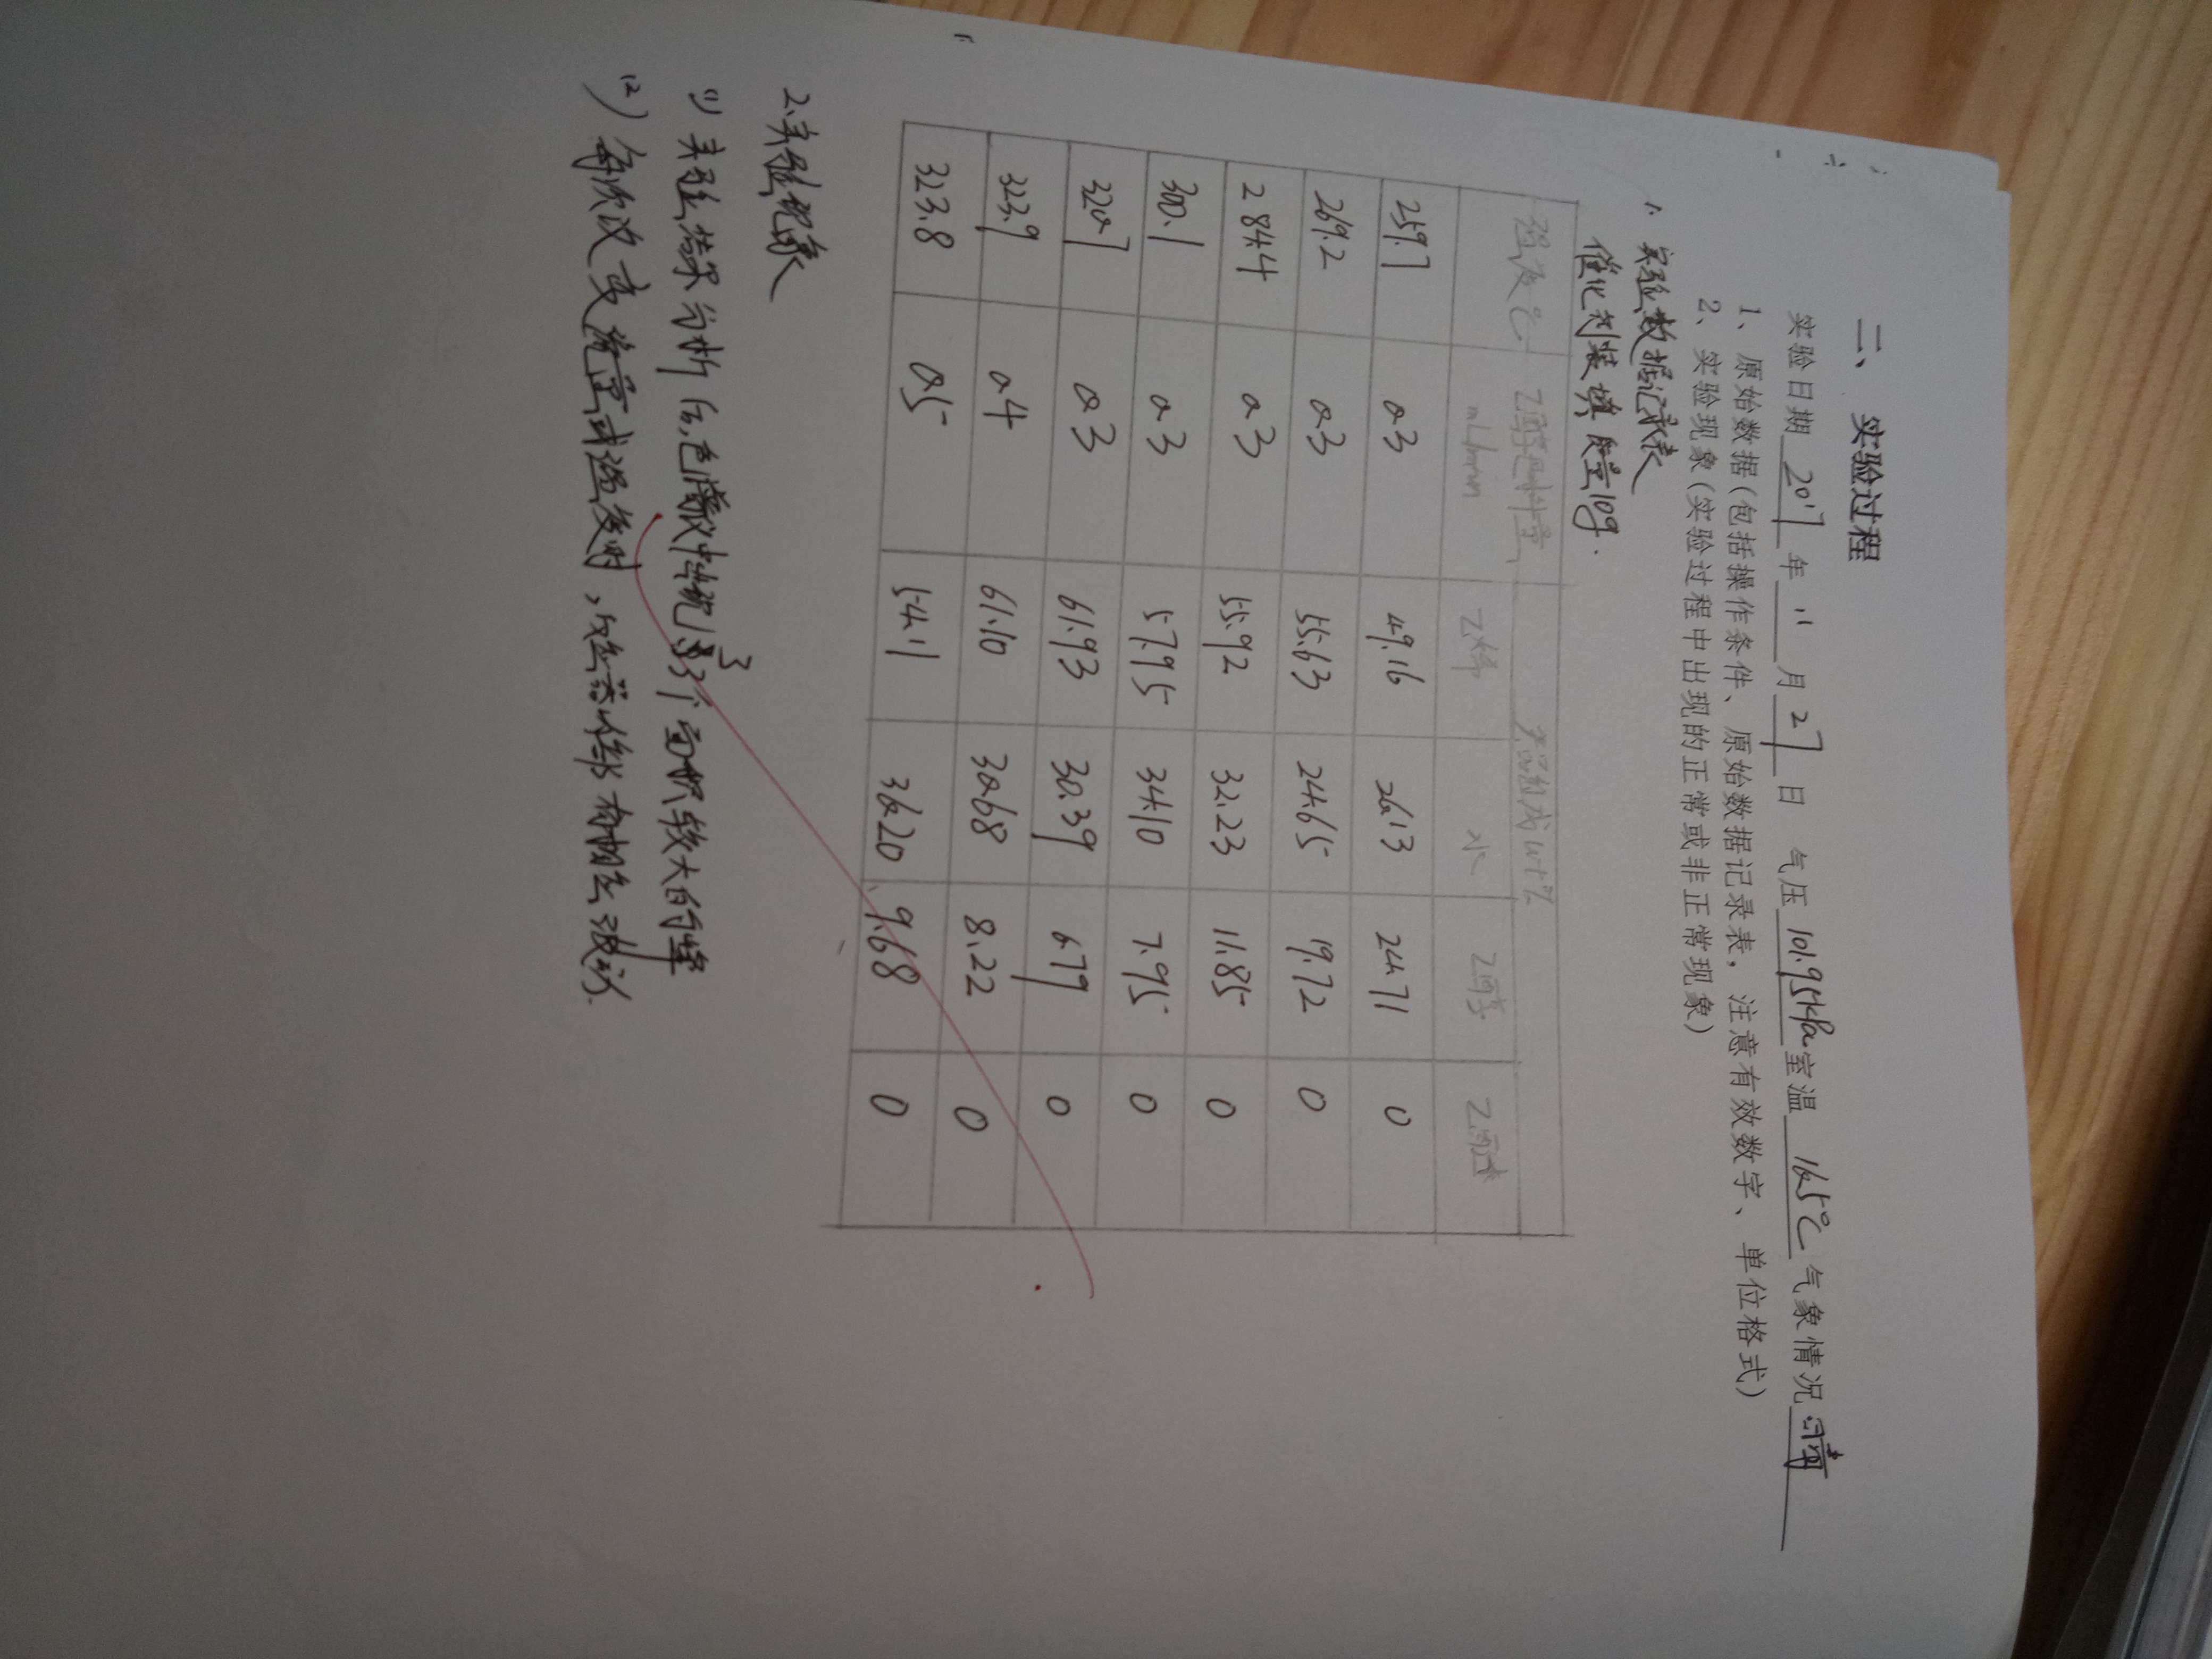 二、 实验过程
实验日期 2017 年 11 月 27 日 气压 101.95kPa 室温 16.5℃ 气象情况 晴
1、原始数据(包括操作条件、原始数据记录表，注意有效数字、单位格式)
2、实验现象(实验过程中出现的正常或非正常现象)
1. 实验数据记录表
催化剂装填质量10g.
温度℃ 乙醇进料量 mL/min 产品组成wt%
乙烯 水 乙醇 乙醚
259.7 0.3 49.16 26.13 24.71 0
269.2 0.3 55.63 24.65 19.72 0
284.4 0.3 55.92 32.23 11.85 0
300.1 0.3 57.95 34.10 7.95 0
320.7 0.3 61.93 30.39 6.79 0
323.9 0.4 61.10 30.68 8.22 0
323.8 0.5 54.11 36.20 9.68 0
2.实验现象
(1) 实验结果分析后,色谱仪中出现3个面积较大的峰
(2) 每次改变流量或温度时,反应器内部有相应波动.